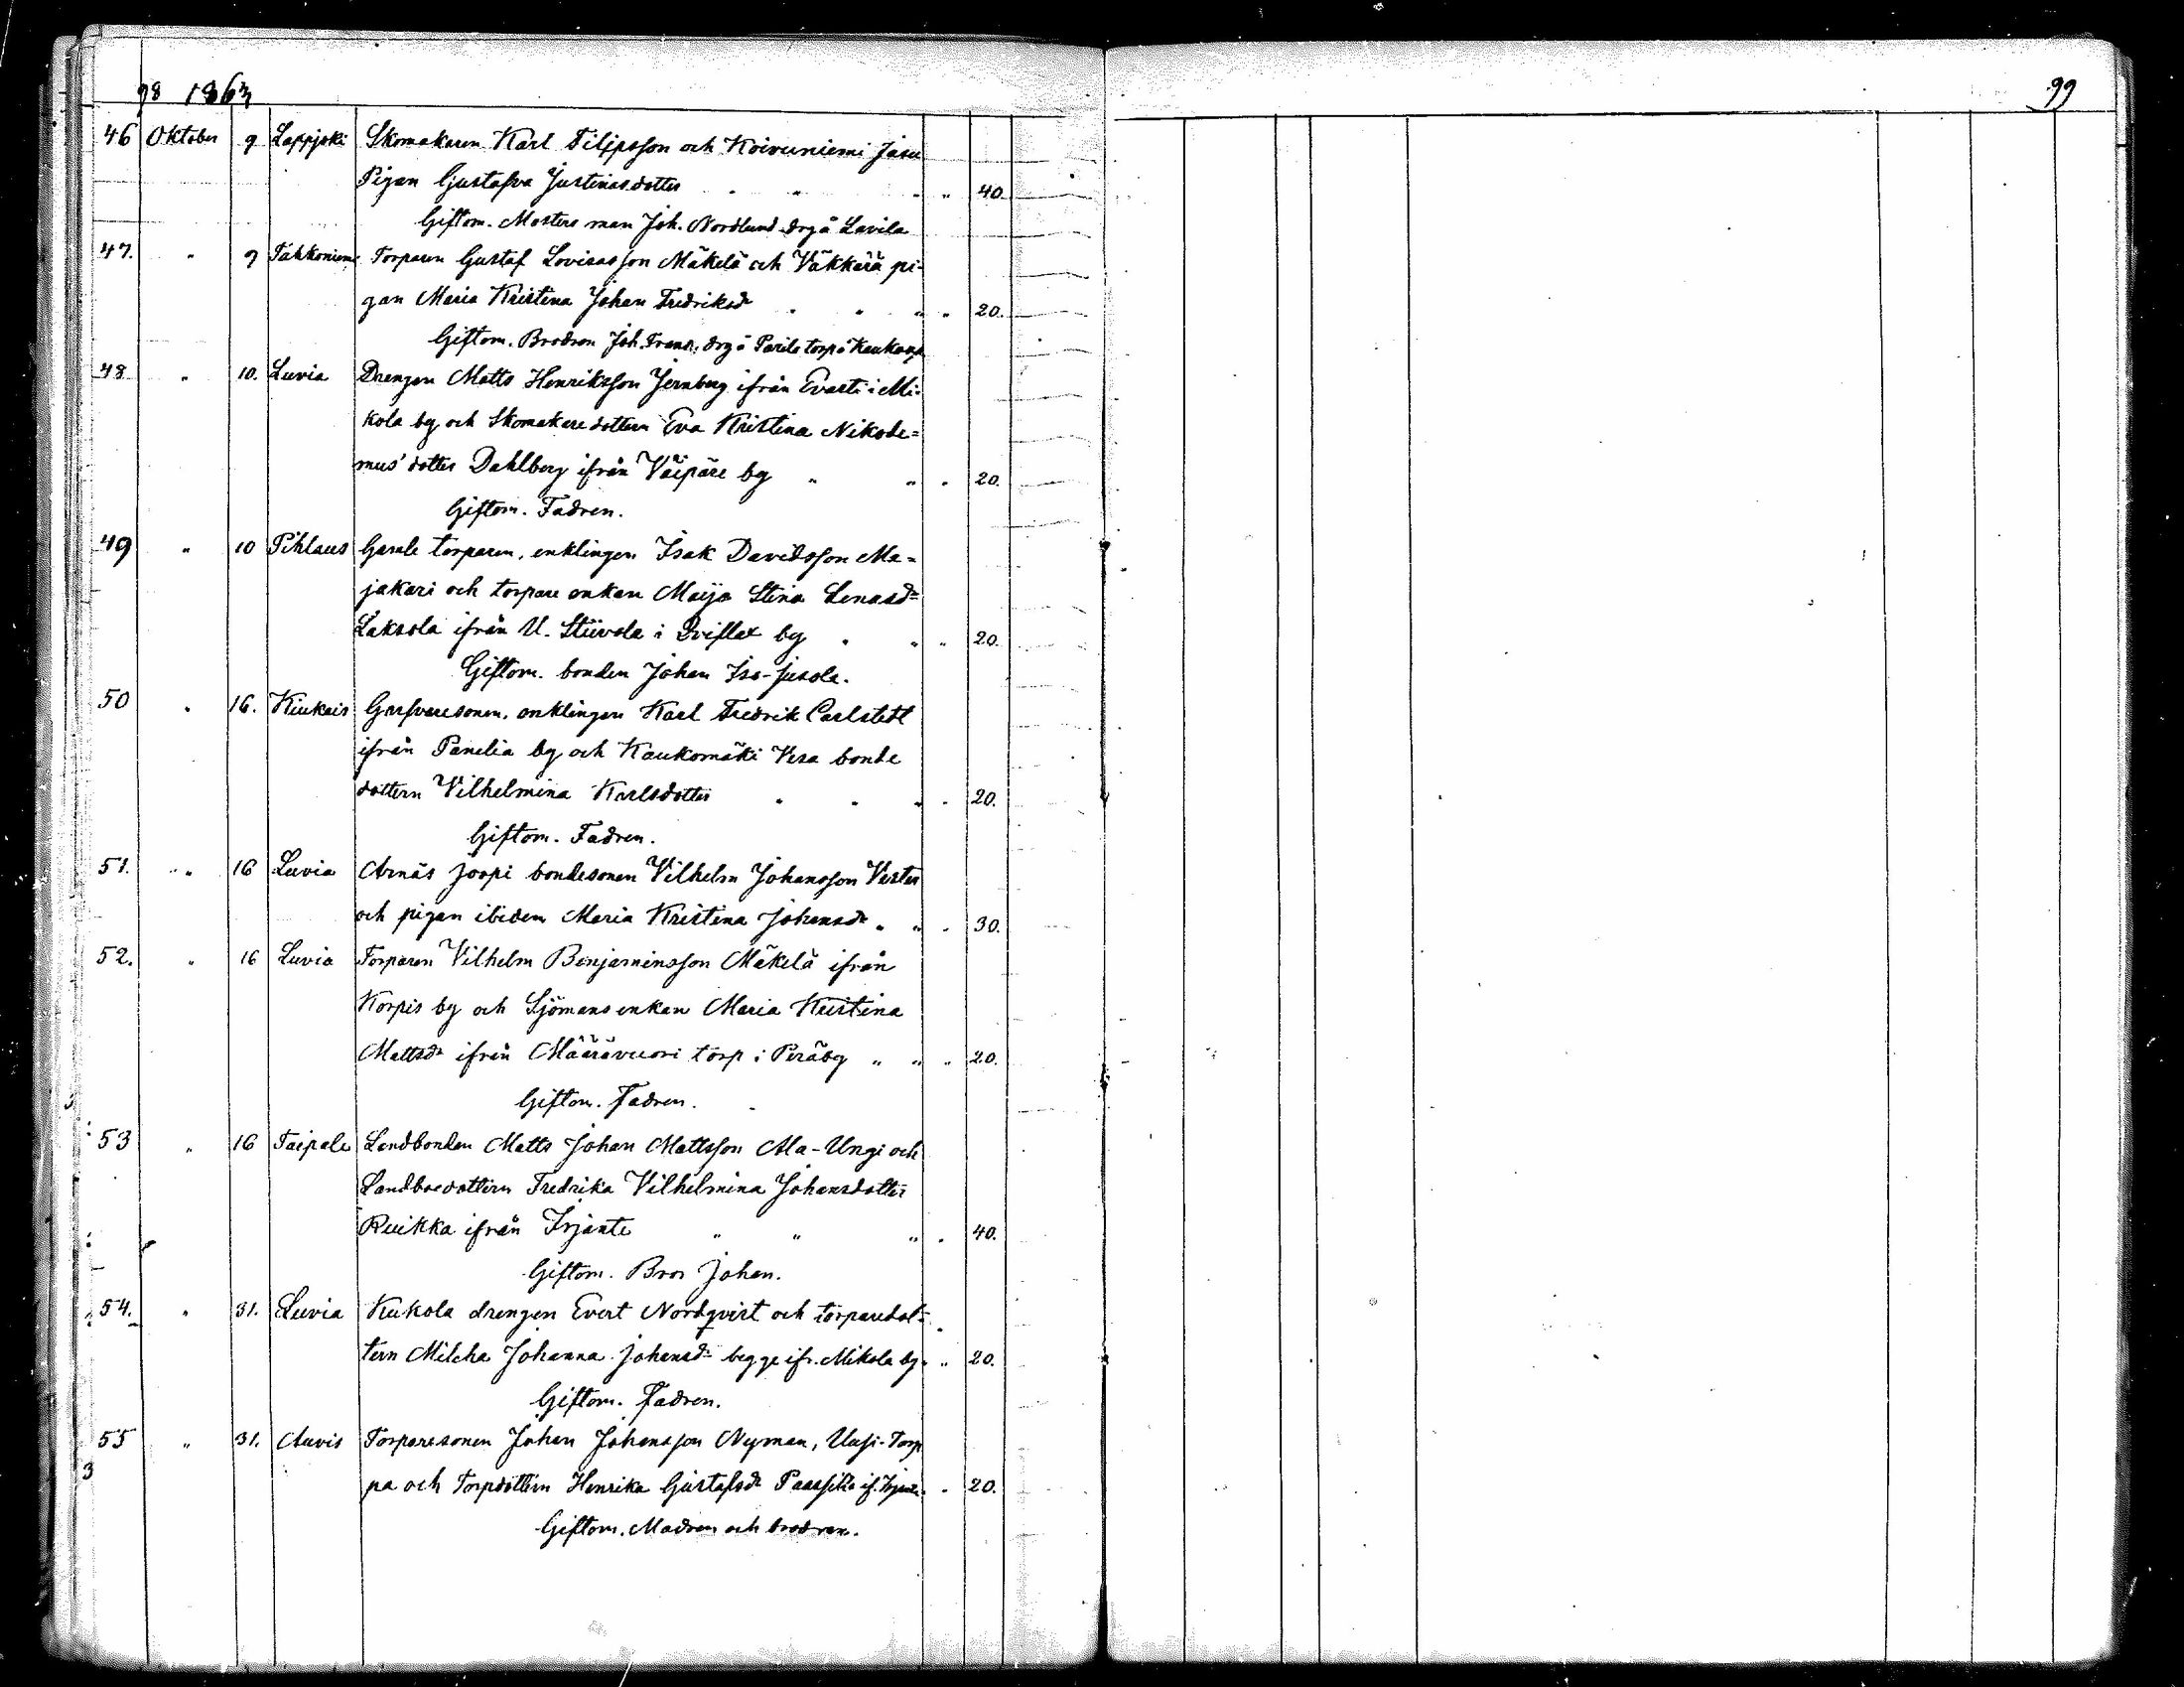 98 1863
99
46 Oktober 9 Lappjoki Skomakaren Karl Filipsson och Koivuniemi Jasu
Pigan Gustafva Justinasdotter " " " " 40.
Giftom. Mosters man Joh. Nordlund drg å Lavila
47. " 9 Torparen Gustaf Lovisasson Mäkelä och Väkkärä pi-
gan Maria Kristina Johan Fredriksdr " " " " 20.
Giftom. Brodren Joh. Frans, drg å Parila torp å
48 " 10. Luvia Drengen Matts Henriksson Jernberg ifrån Evasti i Mi-
kola by och Skomakaredottern Eva Kristina Nikode=
mus'dotter Dahlberg ifrån Väipäre by " " " 20.
Giftom. Fadren.
49 " 10 Pihlaus Gamle torparen, enklingen Isak Davidsson Ma=
jakari och torpare enkan Maija Stina Lenasdr
Laksola ifrån U. Stiivola i by " " " 20.
Giftom. bonden Johan Iso-jusola.
50 " 16. Kiukais Garfvaresonen, enklingen Karl Fredrik Carlstedt
ifrån Panelia by och Kaukomäki Vesa bonde
dottern Vilhelmina Karlsdotter " " " " 20.
Giftom. Fadren.
51. " 16 Luvia Arnäs Joopi bondesonen Vilhelm Johansson Vester
och pigan ibidem Maria Kristina Johansdr " " " 30.
52. " 16 Luvia Torparen Vilhelm Benjaminsson Mäkelä ifrån
Korpis by och Sjömansenkan Maria Kristina
Mattsdr ifrån Määrävuori torp i Peräby " " " 20.
Giftom. Fadren.
53 " 16 Taipale Landbonden Matts Johan Mattsson Ala-Ungi och
Landboedottern Fredrika Vilhelmina Johansdotter
Ruikka ifrån Irjante " " " " 40.
Giftom. Bror Johan.
54. " 31. Luvia Kukola drengen Evert Nordqvist och torparedot=
tern Milcha Johanna Johansdr begge ifr. Mikola by " " 20.
Giftom. Fadren.
55 " 31. Auvis Torparesonen Johan Johansson Nyman, Uusi-Torp
pa och Torpdottern Henrika Gustafsdr if. Irjante " 20.
Giftom. Modren och brodren.